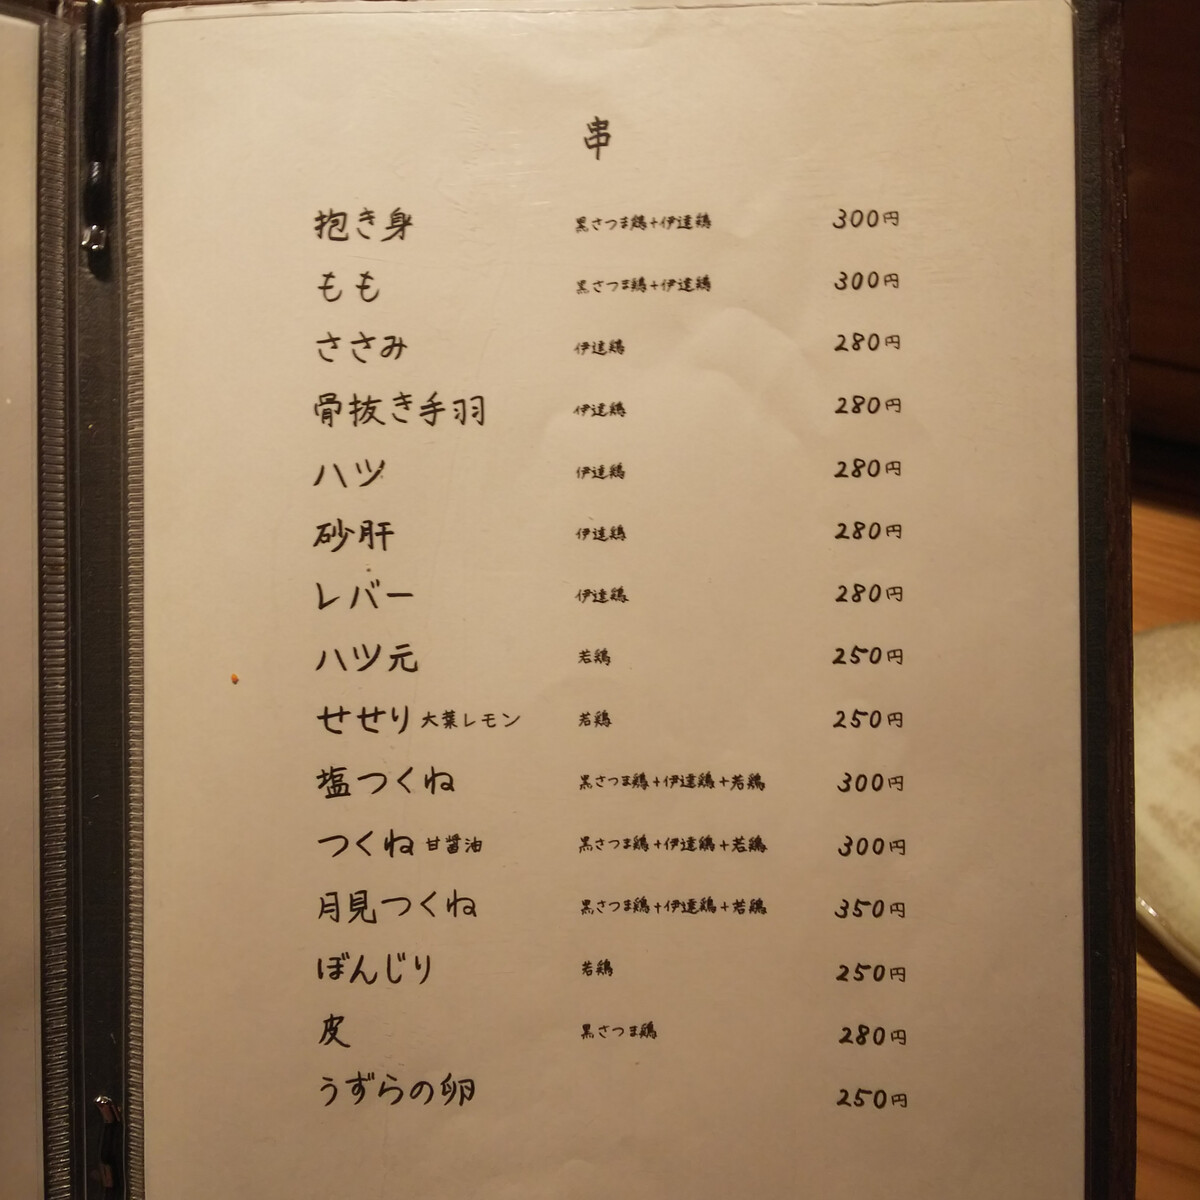 串
抱き身 黒さつま鶏+伊達鶏 300円
もも 黒さつま鶏+伊達鶏 300円
ささみ 伊達鶏 280円
骨抜き手羽 伊達鶏 280円
ハツ 伊達鶏 280円
砂肝 伊達鶏 280円
レバー 伊達鶏 280円
ハツ元 若鶏 250円
せせり 大葉レモン 若鶏 250円
塩つくね 黒さつま鶏+伊達鶏+若鶏 300円
つくね 甘醤油 黒さつま鶏+伊達鶏+若鶏 300円
月見つくね 黒さつま鶏+伊達鶏+若鶏 350円
ぼんじり 若鶏 250円
皮 黒さつま鶏 280円
うずらの卵 250円